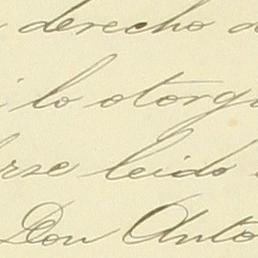 derecho
lo otorg
rse leido
Don Anto